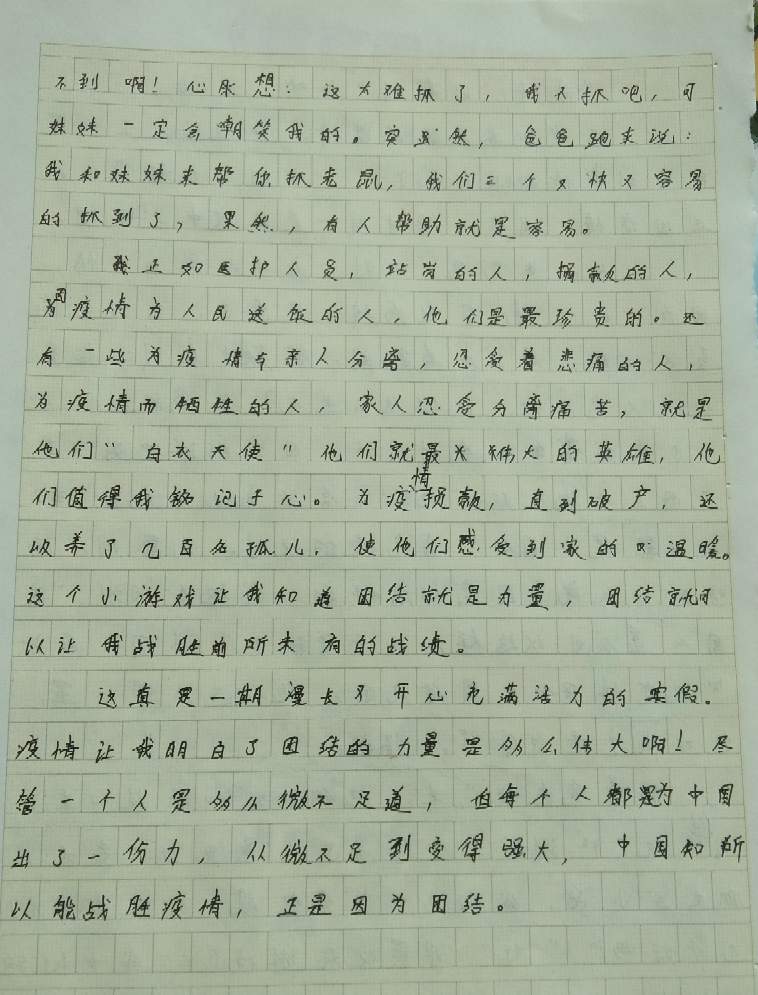 不到啊！心里想：这太难抓了，我不抓吧，可
妹妹一定会嘲笑我的。突然，爸爸跑来说：
我和妹妹来帮你抓老鼠，我们三个又快又容易
的抓到了，果然，有人帮助就是容易。
我正如医护人员，站岗的人，捐款的人，
为因疫情为人民送饭的人，他们是最珍贵的。还
有一些为疫情与亲人分离，忍受着悲痛的人，
为疫情而牺牲的人，家人忍受分离痛苦，就是
他们“白衣天使”他们就最伟大的英雄，他
们值得我铭记于心。为疫情损款，直到破产，还
收养了几百名孤儿，使他们感受到家的温暖。
这个小游戏让我知道团结就是力量，团结就可
以让我战胜前所未有的战绩。
这真是一期漫长又开心充满活力的寒假。
疫情让我明白了团结的力量是多么伟大啊！尽
管一个人是多么微不足道，但每个人都是为中国
出了一份力，从微不足到变得强大，中国知所
以能战胜疫情，正是因为团结。